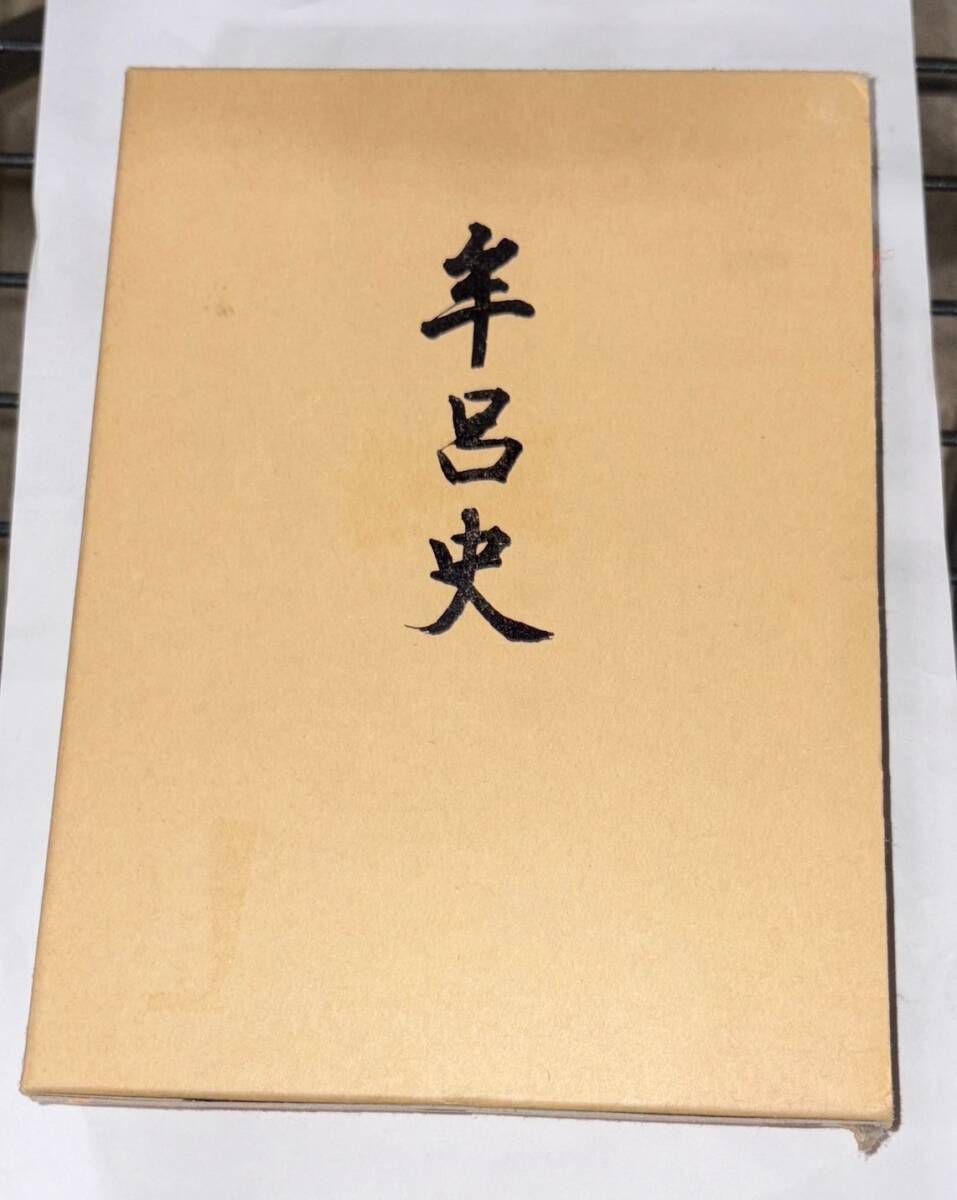 牟呂史